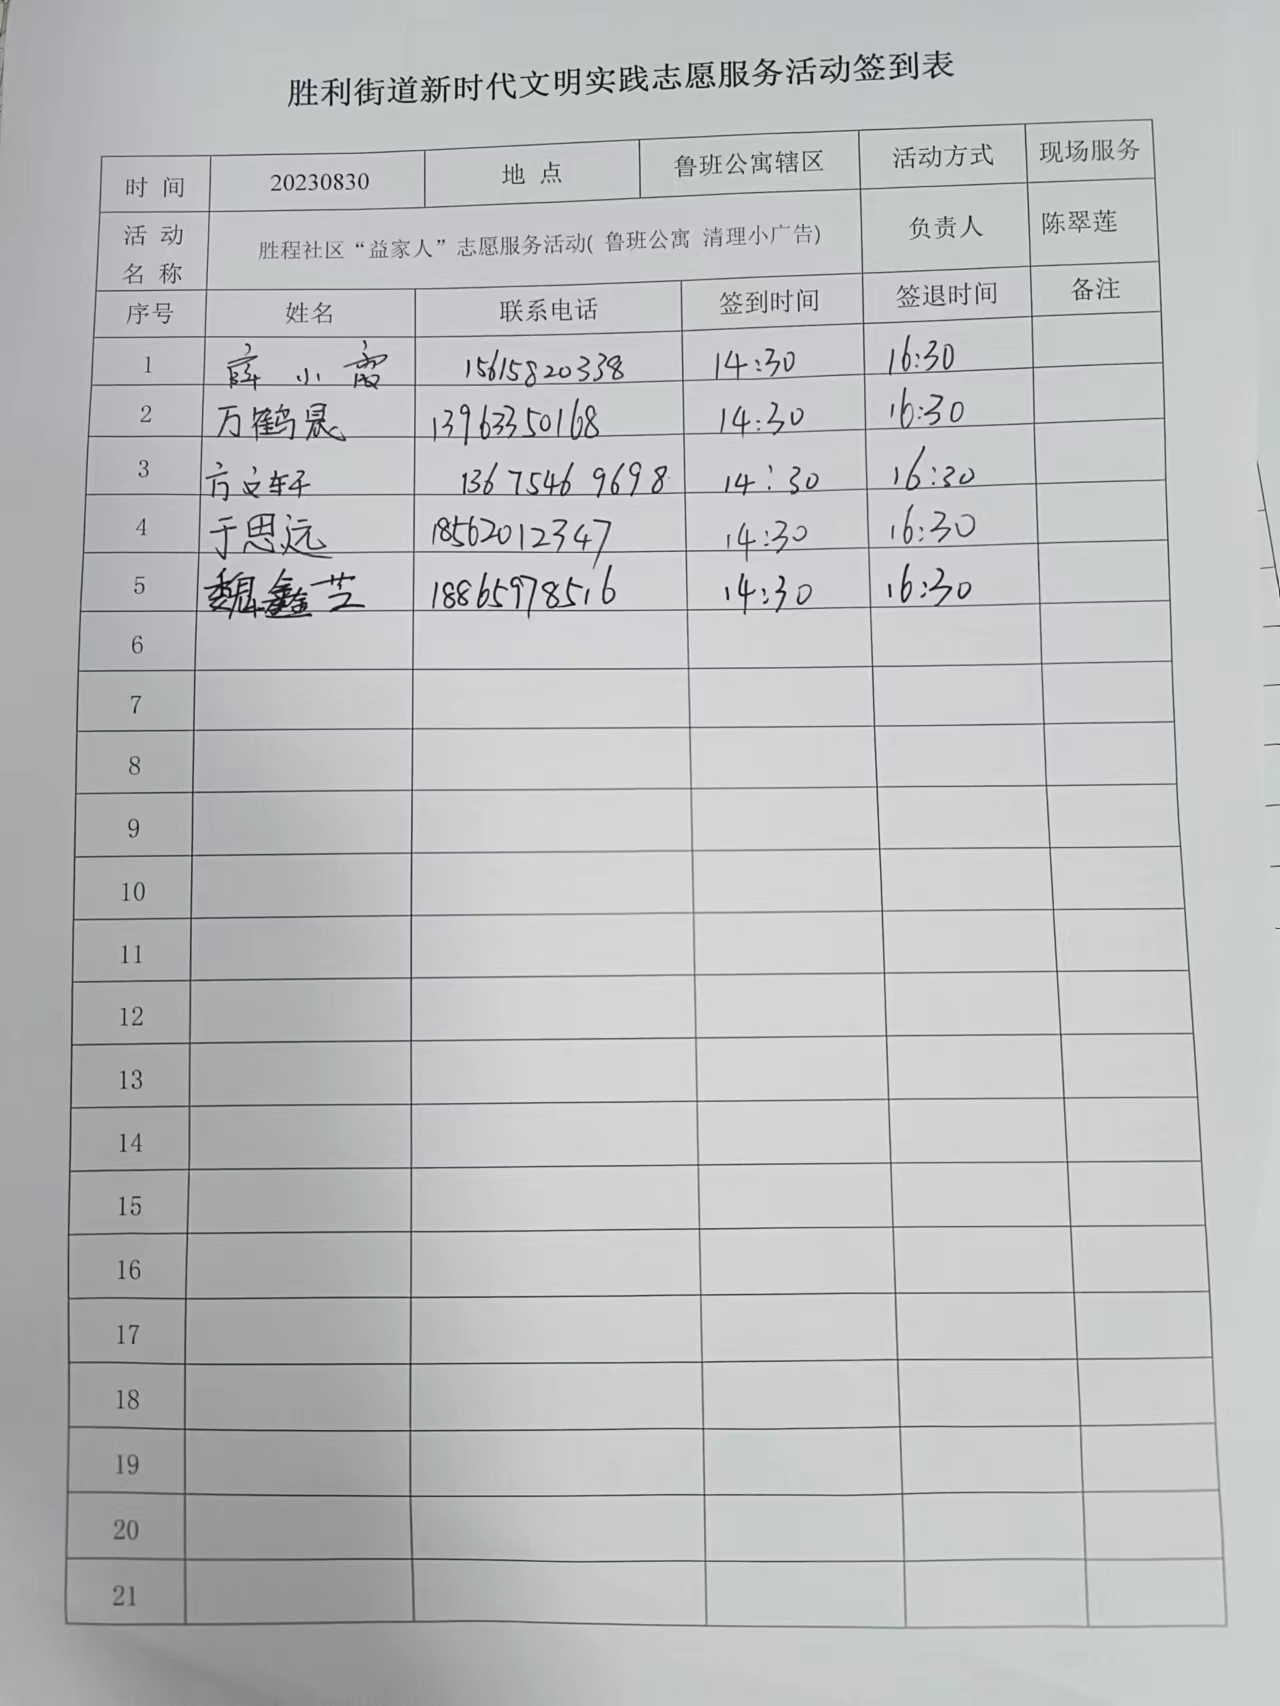 胜利街道新时代文明实践志愿服务活动签到表
时 间 20230830 地 点 鲁班公寓辖区 活动方式 现场服务
活 动 名 称 胜程社区“益家人”志愿服务活动( 鲁班公寓 清理小广告) 负责人 陈翠莲
序号 姓名 联系电话 签到时间 签退时间 备注
1 薛小霞 15615820338 14:30 16:30
2 万鹤晟 13963350168 14:30 16:30
3 方文轩 13675469698 14:30 16:30
4 于思远 18562012347 14:30 16:30
5 魏鑫芝 18865978516 14:30 16:30
6
7
8
9
10
11
12
13
14
15
16
17
18
19
20
21